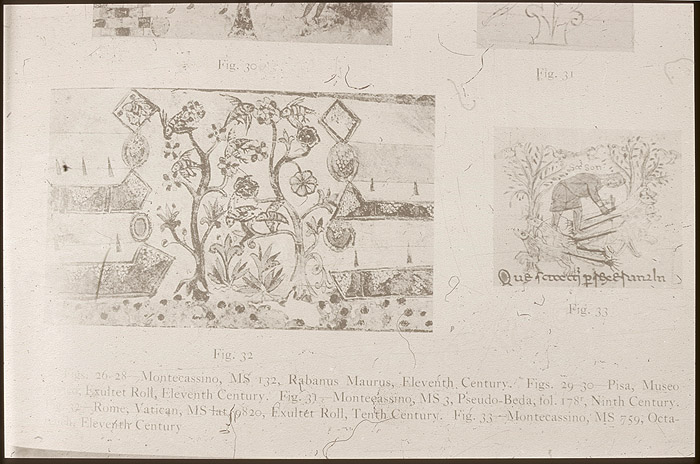 Fig. 30
Fig. 31
Fig. 32
Fig. 33
Figs. 26-28—Montecassino, MS 132, Rabanus Maurus, Eleventh Century. Figs. 29-30—Pisa, Museo
Exultet Roll, Eleventh Century. Fig. 31—Montecassino, MS 3, Pseudo-Beda, fol. 178r, Ninth Century.
—Rome, Vatican, MS lat. 9820, Exultet Roll, Tenth Century. Fig. 33—Montecassino, MS 759, Octa-
Eleventh Century